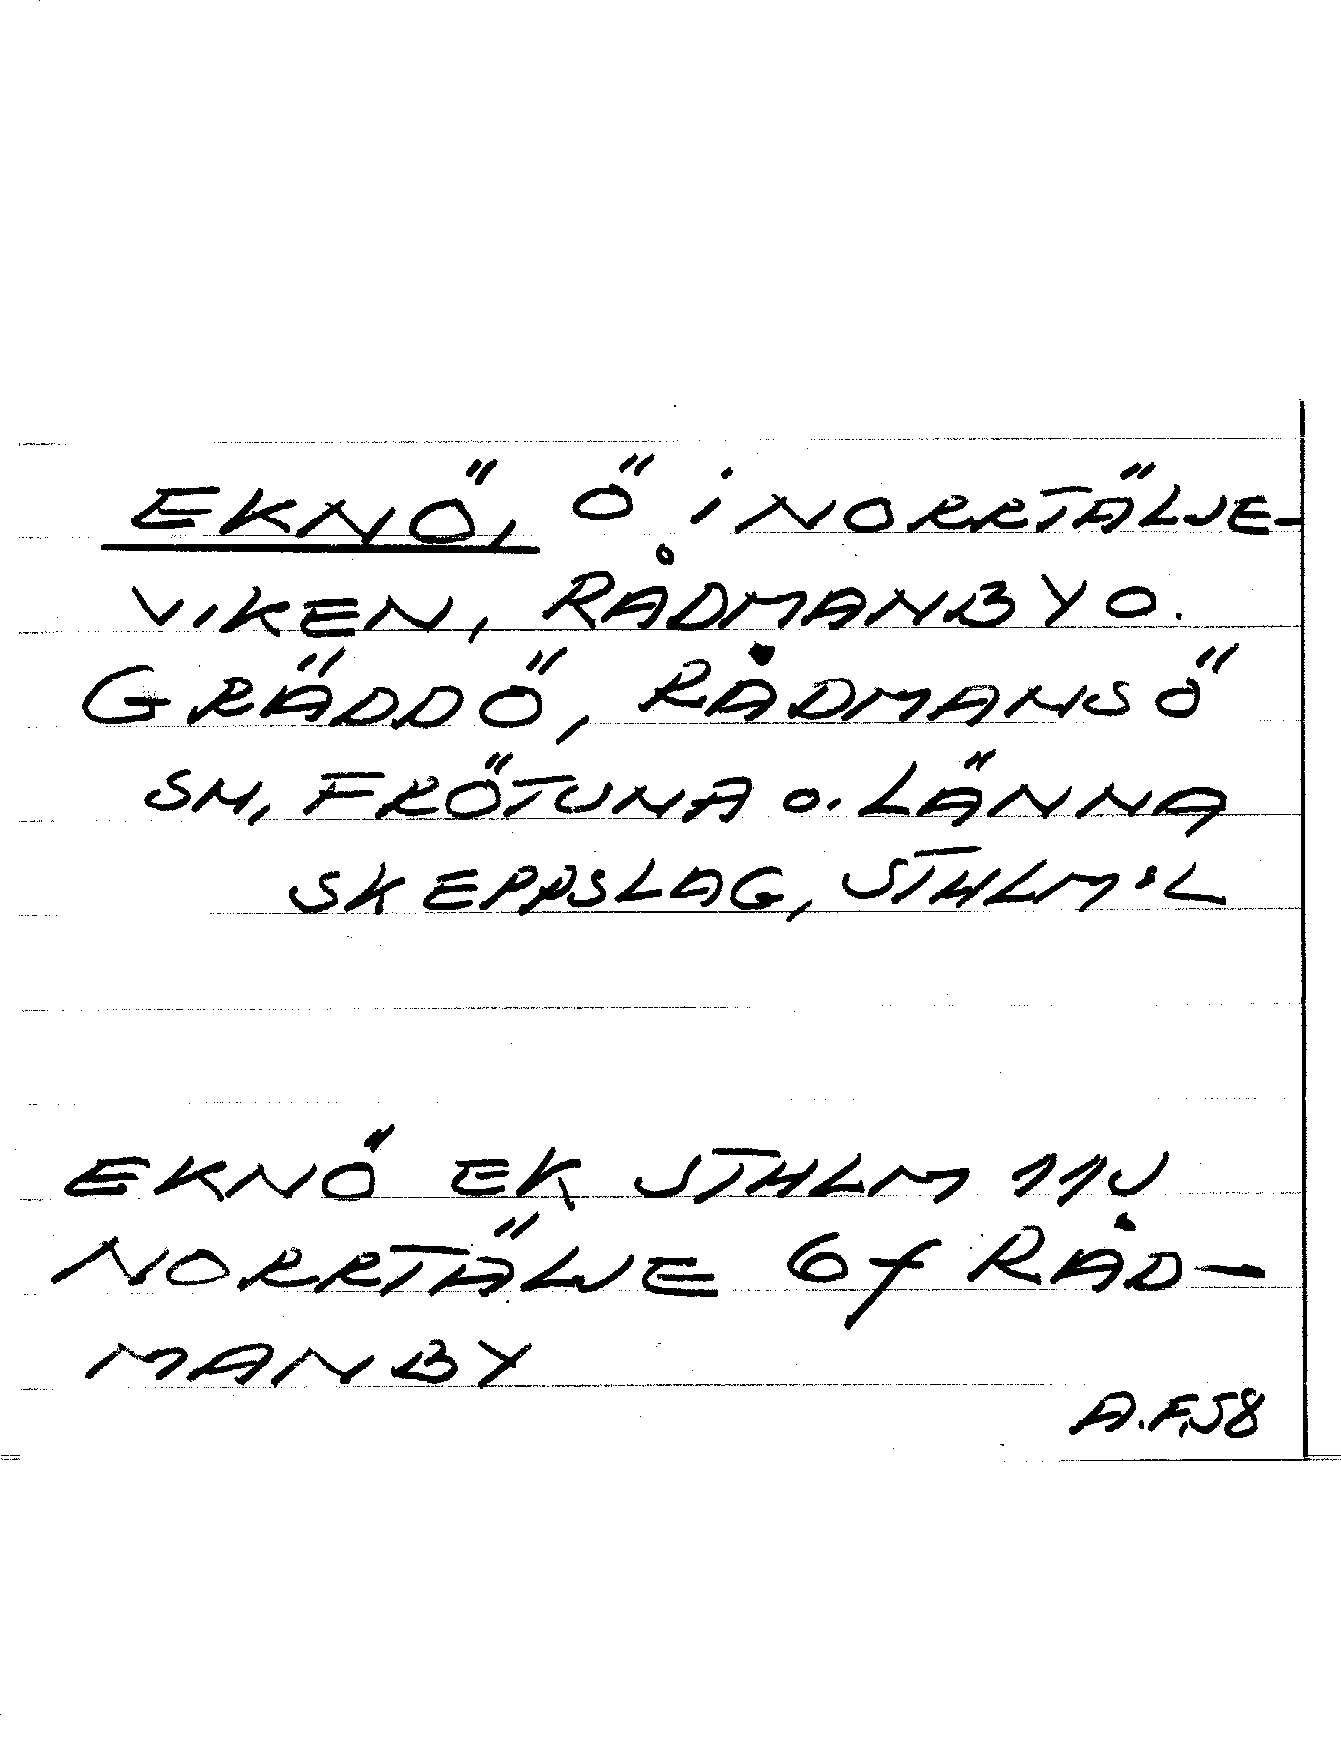 EKNÖ, Ö i NORRTÄLJE-
VIKEN, RÅDMANBY O.
GRÄDDÖ, RÅDMANSÖ
SN, FRÖTUNA o. LÄNNA
SKEPPSLAG, STHLM:L
EKNÖ EK STHLM 11J
NORRTÄLJE 6f RÅD-
MANBY
A.F.58